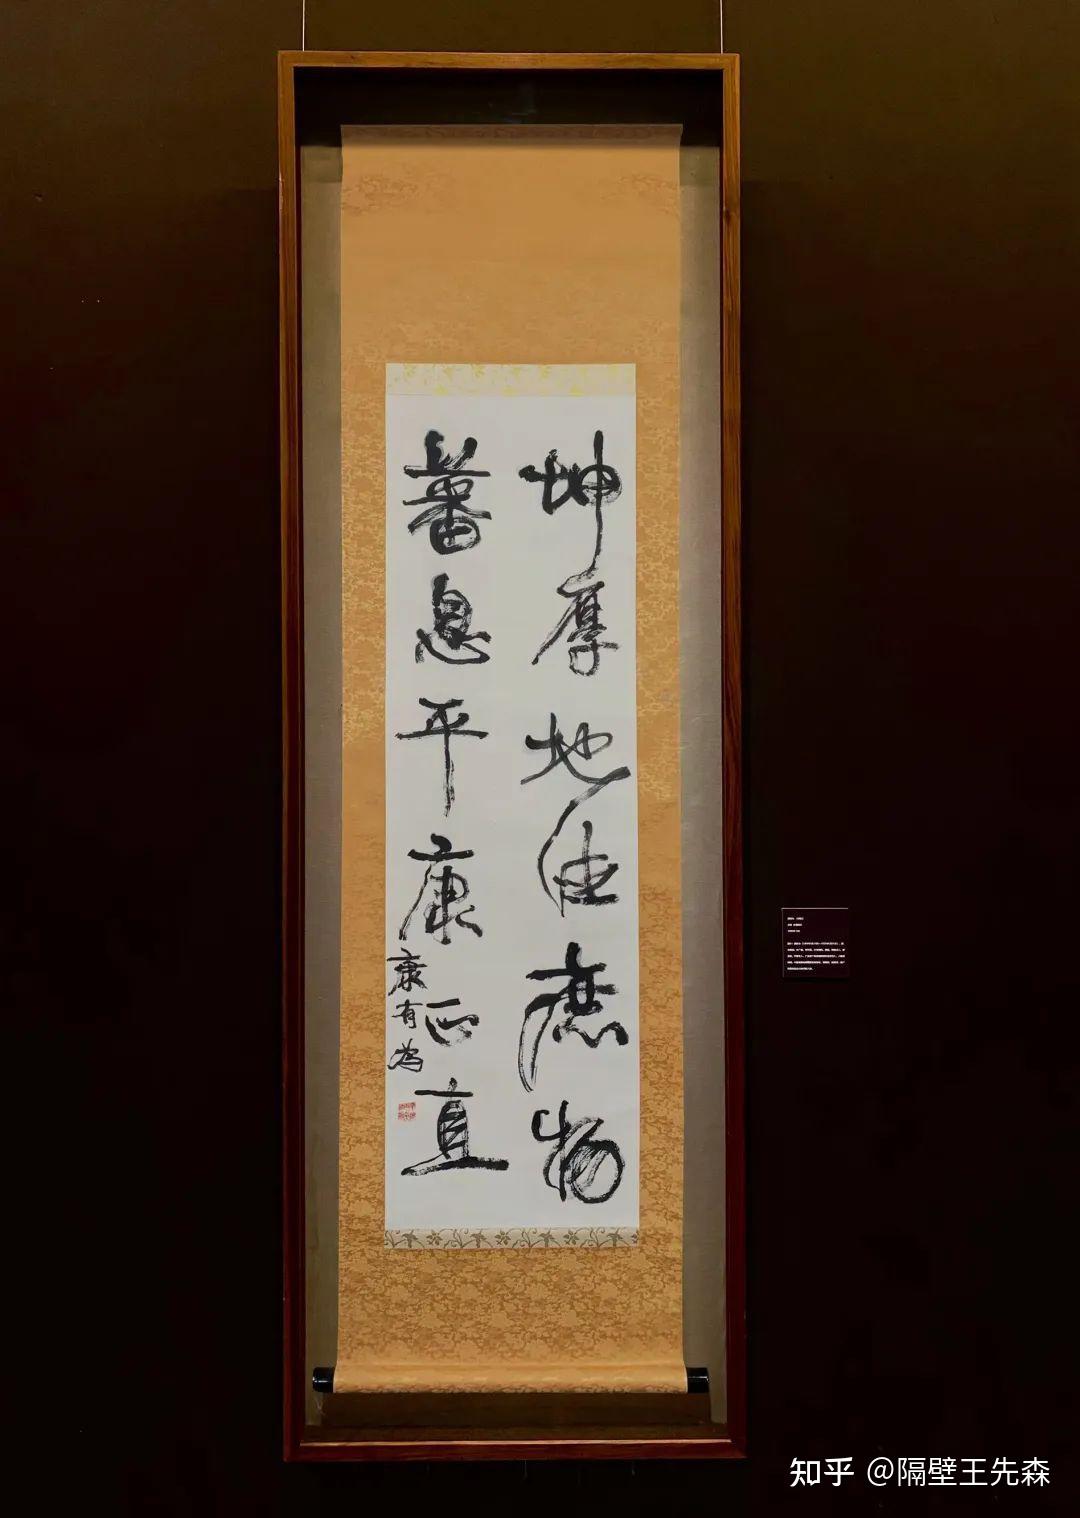 坤厚地德庶物
蕃息平康正直
康有为
知乎 @隔壁王先森